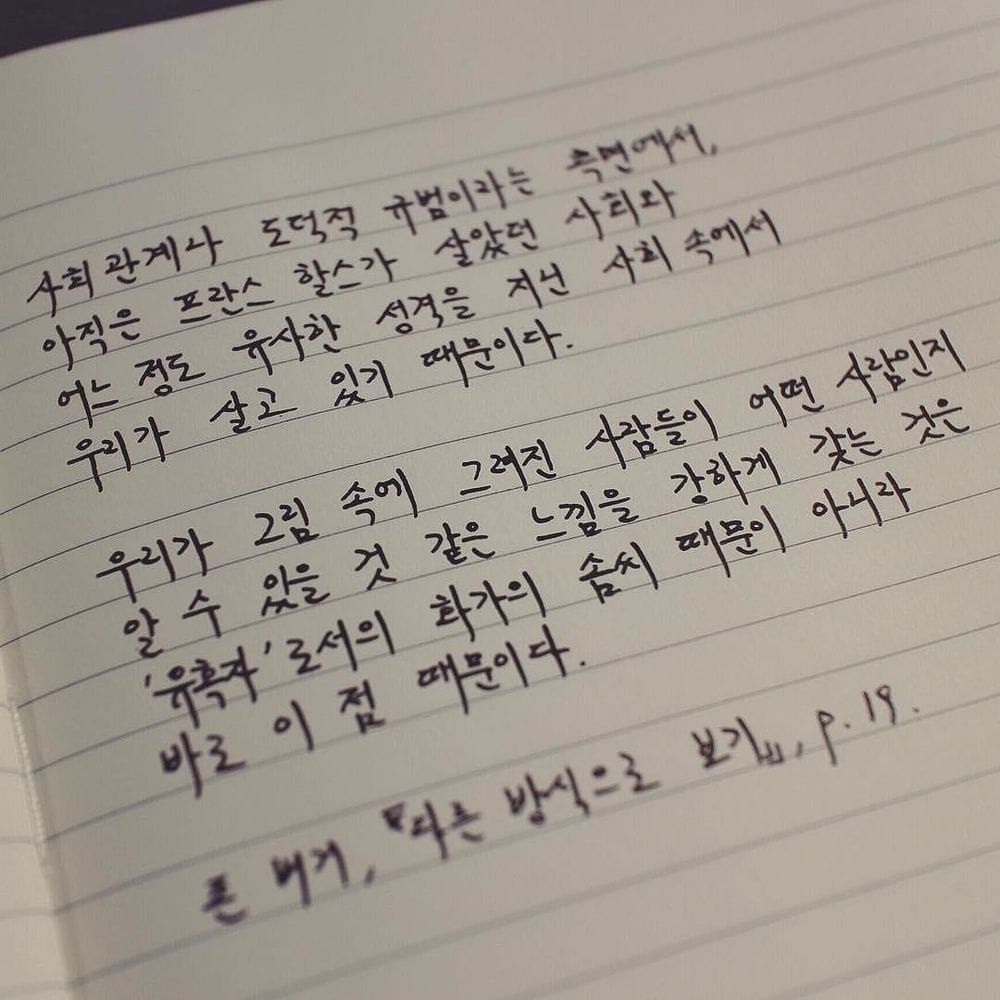 사회 관계나 도덕적 규범이라는 측면에서,
아직은 프란스 할스가 살았던 사회와
어느 정도 유사한 성격을 지닌 사회 속에서
우리가 살고 있기 때문이다.
우리가 그림 속에 그려진 사람들이 어떤 사람인지
알 수 있을 것 같은 느낌을 강하게 갖는 것은
'유혹자'로서의 화가의 솜씨 때문이 아니라
바로 이 점 때문이다.
존 버거, 『다른 방식으로 보기』, p. 19.